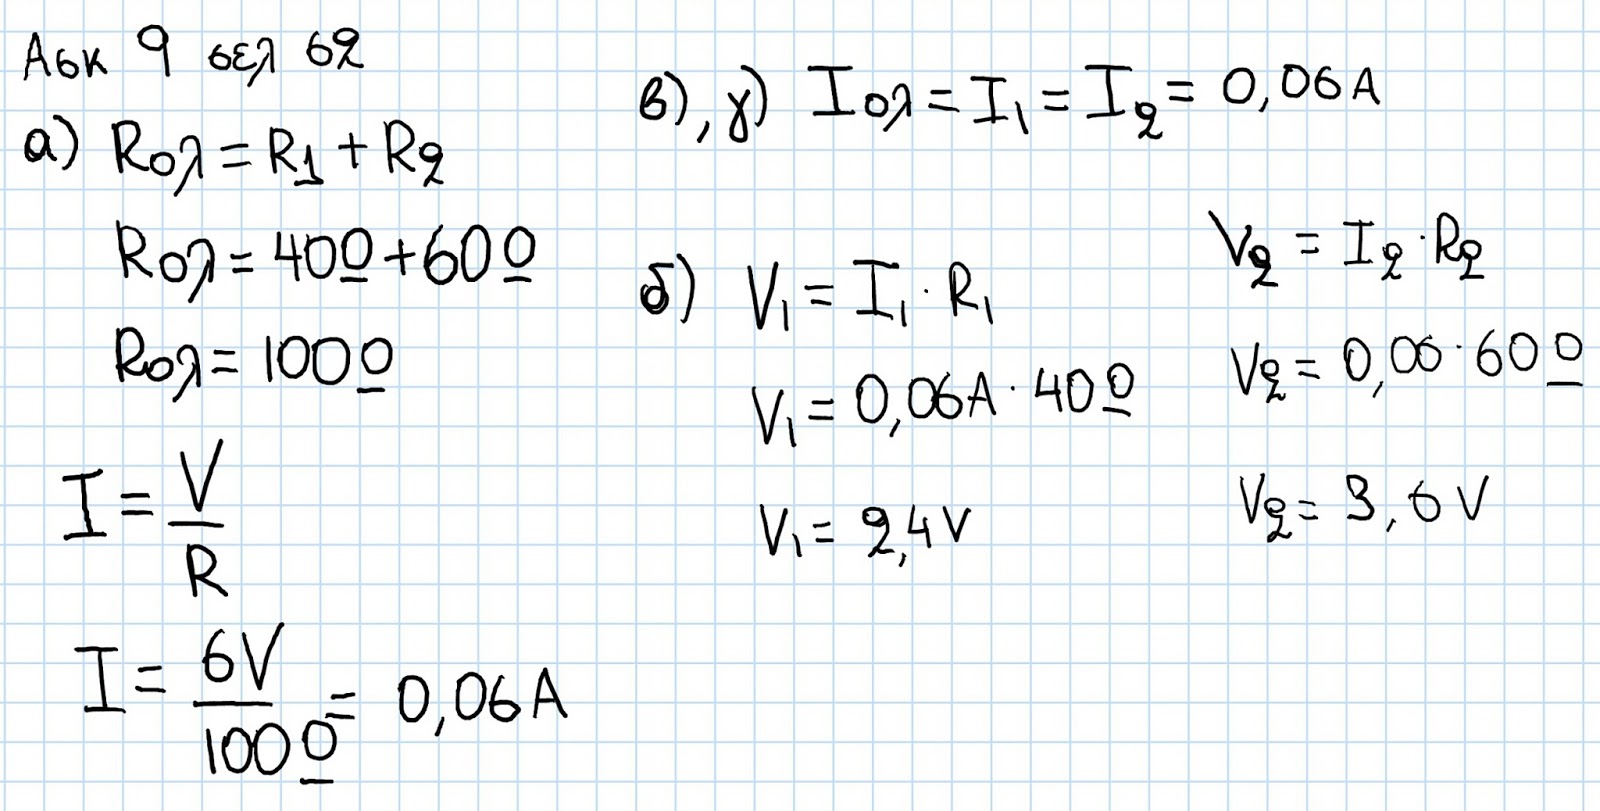 Ασκ 9 σελ 62
α) Rολ = R1 + R2
Rολ = 40Ω + 60Ω
Rολ = 100Ω
I = V/R
I = 6V/100Ω = 0,06A
β), γ) Iολ = I1 = I2 = 0,06A
δ) V1 = I1 · R1
V1 = 0,06A · 40Ω
V1 = 2,4V
V2 = I2 · R2
V2 = 0,06 · 60Ω
V2 = 3,6V